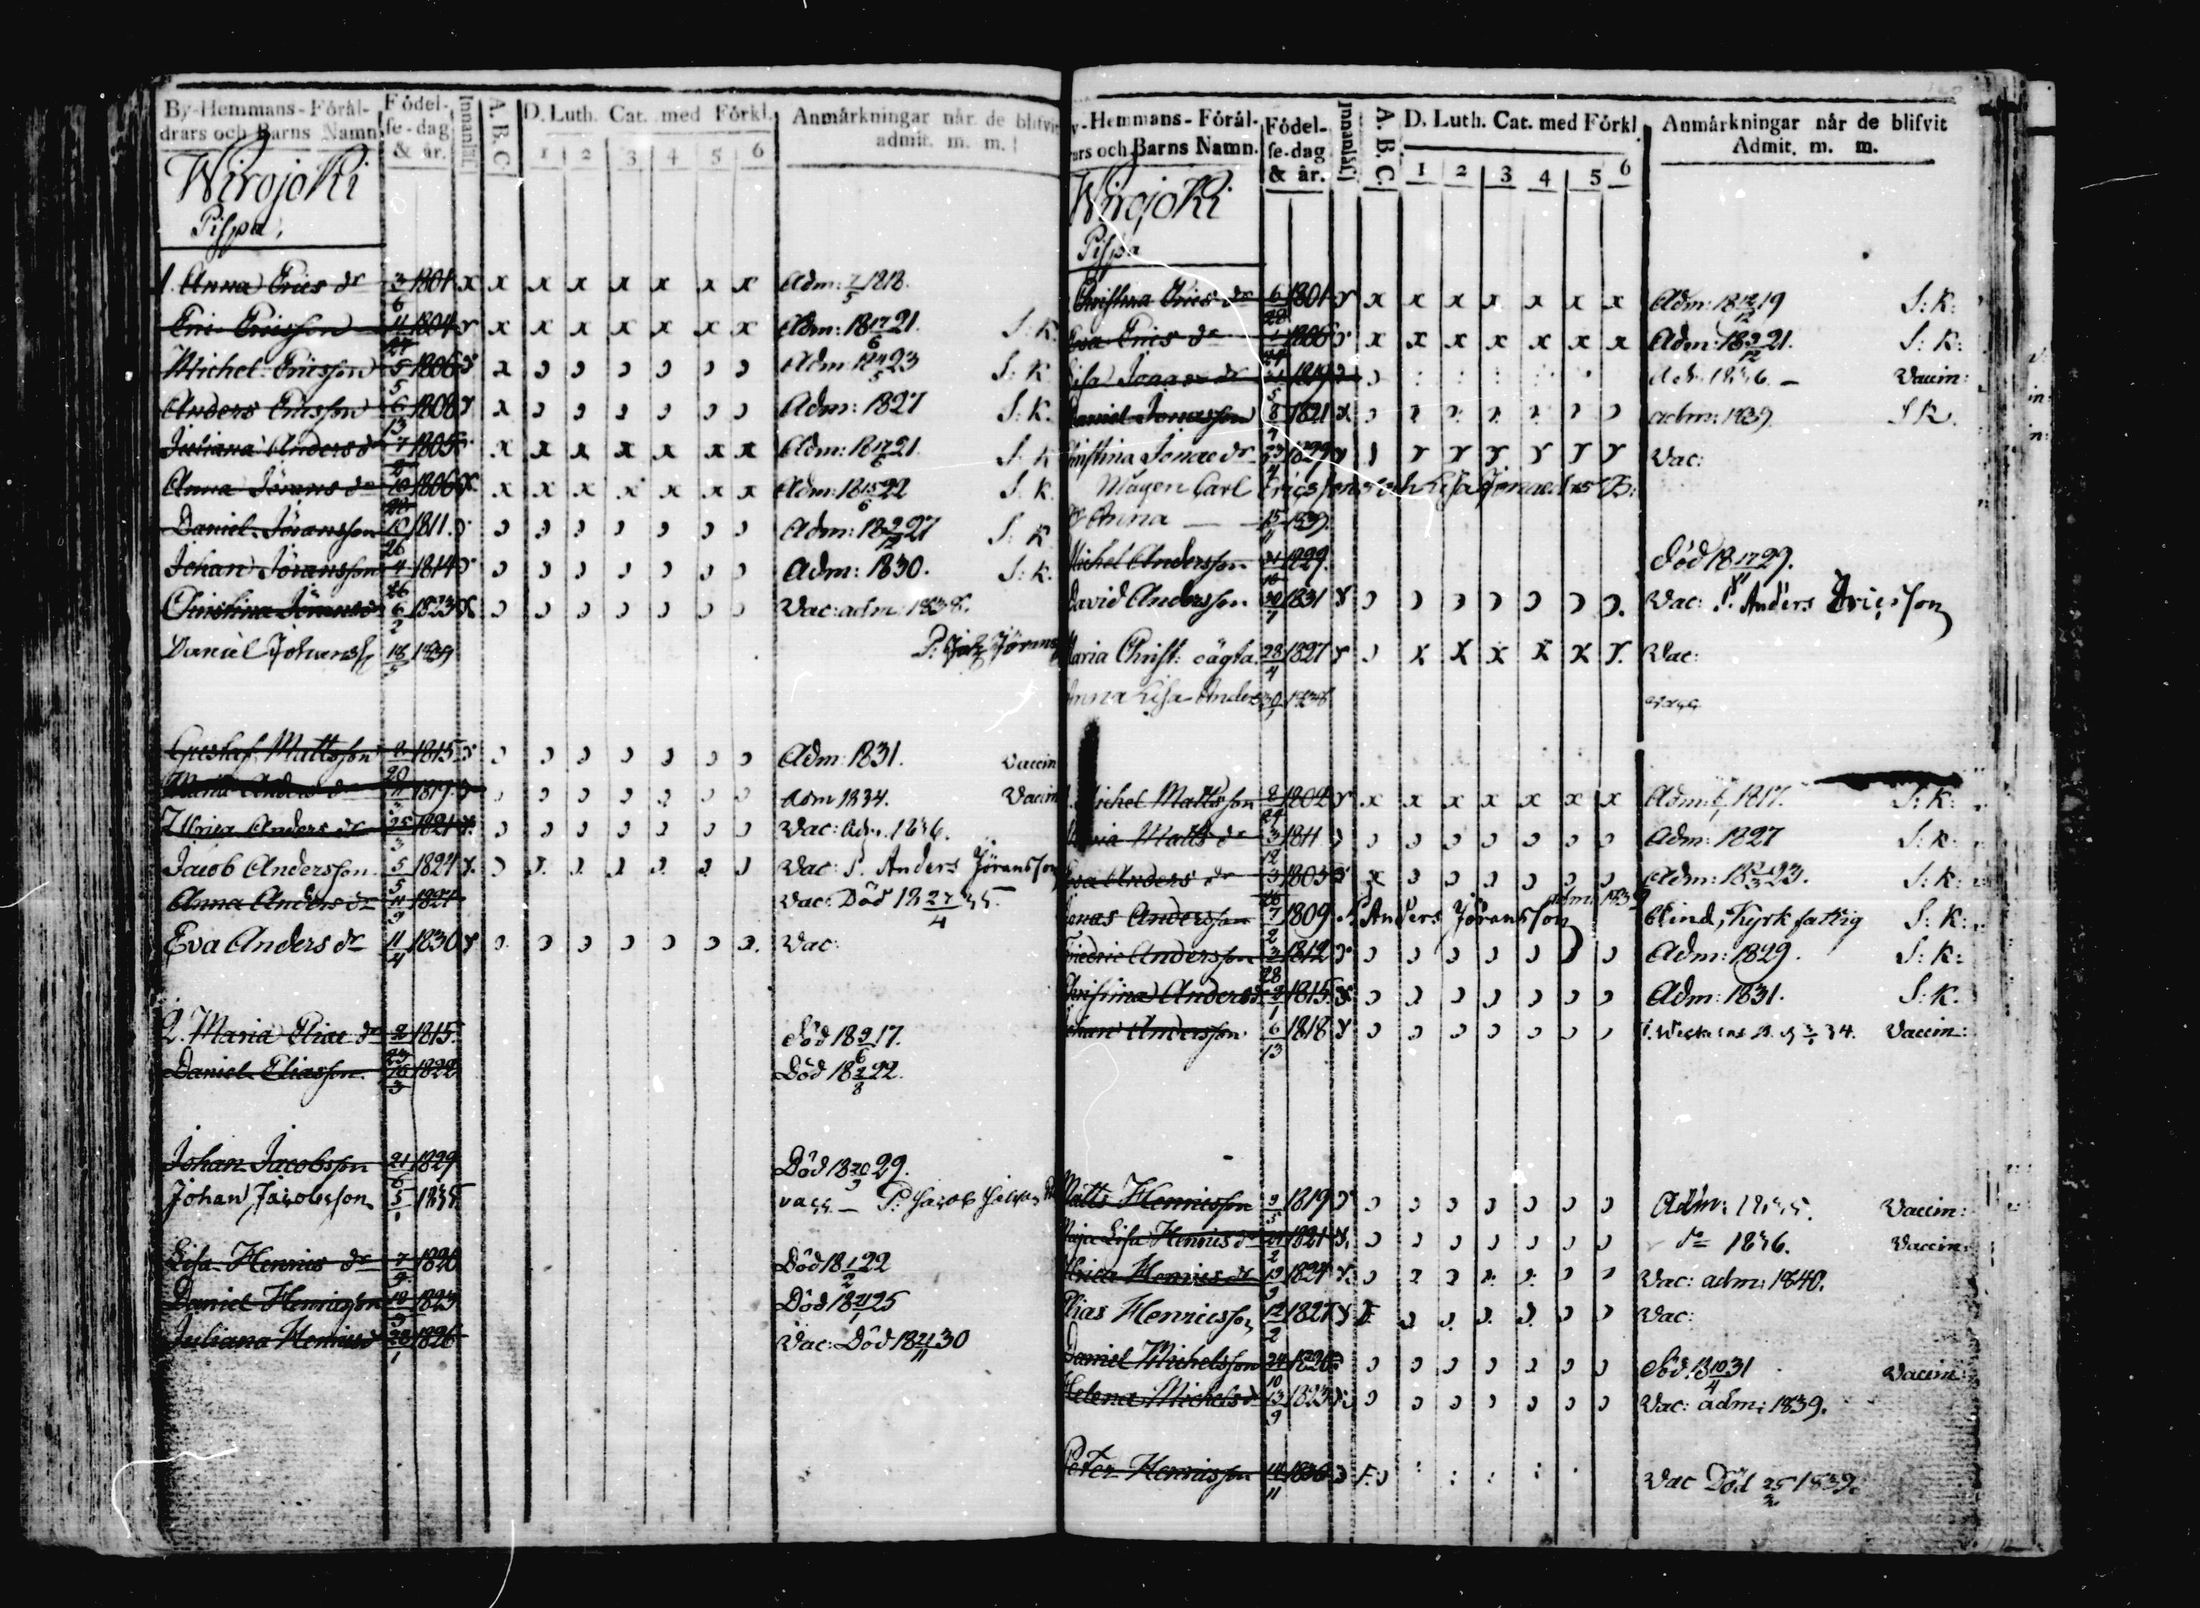 By-Hemmans-Förål-
drars och Barns Namn.
Födel-
se-dag
& år.
Innanläs.
A. B. C.
D. Luth. Cat. med Förkl.
1 2 3 4 5 6
Anmårkningar når de blifvit
admit. m. m.
Wirojoki
Pispa.
1. Anna Erics dr 3/6 1801 x x x x x x x x Adm: 7/5 1818.
Eric Ericsson 11/27 1804 x x x x x x x Adm: 18 17/6 21. S: K.
Michel Ericsson 5/5 1806 x Adm: 18 23 S: K.
Anders Ericsson 6/13 1808 x Adm: 1827 S: K.
Juliana Anders dr 7 1805 x x x x x x x Adm: 18 17/6 21. S: K
Anna Jörans dr 10 1806 x x x x x x x x Adm: 18 15/6 22 S: K.
Daniel Jöransson 10/26 1811. Adm: 18 2/12 27 S: K
Johan Jöransson 4/26 1814 Adm: 1830. S: K.
Christina Jörans dr 6/2 1823 x Vac: adm: 1838.
Daniel Johanss 18/5 1839 P: Joh Jörans
Gustaf Mattsson 8/20 1815 Adm: 1831. Vaccin
Maria Anders dr 11/3 1819 Adm 1834. Vaccin
Ulrica Anders dr 25/3 1821 Vac: Adm. 1836.
Jacob Andersson 5/5 1824 Vac: P. Anders Jöransson
Anna Anders dr 11/9 1827 Vac: Död 18 27/4 35.
Eva Anders dr 11/4 1830 Vac:
2. Maria Eliae dr 2 1815. Död 18 9/6 17.
Daniel Eliasson 16/3 1822 Död 18 2/8 22.
Johan Jacobsson 21/6 1829 Död 18 20/9 29.
Johan Jacobsson 5/1 1835 vacc — P: Jacob
Lisa Henrics dr 7/9 1820 Död 18 1/2 22
Daniel Henricsson 10/9 1823 Död 18 21/1 25
Juliana Henrics d 28/1 1826 Vac: Död 18 21/11 30
y-Hemmans-Förål-
ars och Barns Namn.
Födel-
se-dag
& år.
Innanläs.
A. B. C.
D. Luth. Cat. med Förkl
1 2 3 4 5 6
Anmårkningar når de blifvit
Admit. m. m.
Wirojoki
Pispa
Christina Erics dr 6/28 1801 x x x x x x x x Adm: 18 12/12 19 S: K:
Eva Erics dr 1/24 1806 x x x x x x x Adm: 18 9/12 21. S: K:
Lisa Jonae dr 1/5 1819 Adm. 1836. — Vaccin:
Daniel Jonasson 8/9 1821 x adm: 1839. S K.
Christina Jonae dr 23/4 1829 Vac:
Mågen Carl Ericssons och Lisa Jonae drs B:
Dr Anna — 15/11 1839.
Michel Andersson 31/10 1829. Död 18 17/11 29.
David Andersson 30/7 1831 Vac: P. Anders Ericsson
Maria Christ: oägta 28/4 1827 Vac:
Anna Lisa Anders 30 1838 vacc
Michel Mattsson 8/24 1802 x x x x x x x Adm: 1817. S: K:
Maria Matts dr 3/12 1811 Adm: 1827 S: K:
Eva Anders dr 3/26 1803 x Adm: 18 2/3 23. S: K:
Jonas Andersson 7/2 1809 P Anders Jöransson adm. 1839 blind, Kyrk fattig S: K:
Fredric Andersson 3/28 1812 Adm: 1829. S: K:
Christina Anders d 2/1 1815 Adm: 1831. S: K.
Johan Andersson 6/13 1818 34. Vaccin:
Matts Henricsson 9/5 1819 Adm: 1835. Vaccin:
Maja Lisa Henrics dr 21/2 1821 dr 1836. Vaccin:
Ulrica Henrics dr 19/9 1824 Vac: adm: 1840.
Elias Henricsson 12/2 1827 Vac:
Daniel Michelsson 24/10 1820 Död: 18 10/4 31 Vaccin:
Helena Michels d 13/9 1823 Vac: adm: 1839.
Peter Henricsson 14/11 1830 Vac Död 25/3 1839.